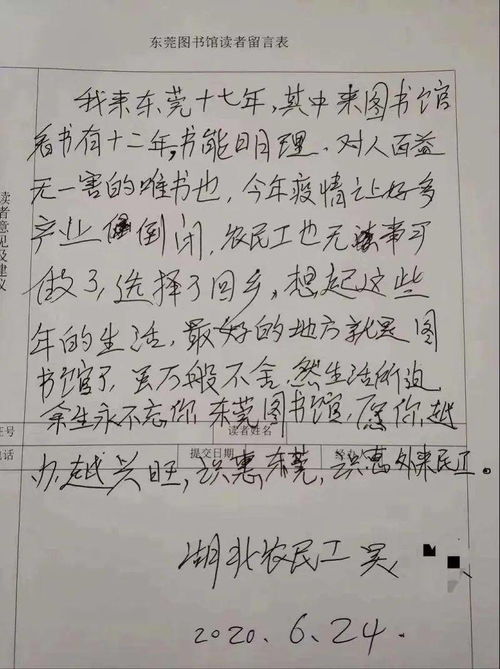 东莞图书馆读者留言表
我来东莞十七年，其中来图书馆
看书有十二年，书能明理，对人百益
无一害的唯书也，今年疫情让好多
产业倒闭，农民工也无事可
做了，选择了回乡，想起这些
年的生活，最好的地方就是图
书馆了，虽万般不舍，然生活所迫
余生永不忘你，东莞图书馆，愿你越
办越兴旺，识惠东莞，识惠外来民工。
读者意见及建议
证号
读者姓名
电话
提交日期
经办人
湖北农民工 吴
2020.6.24.